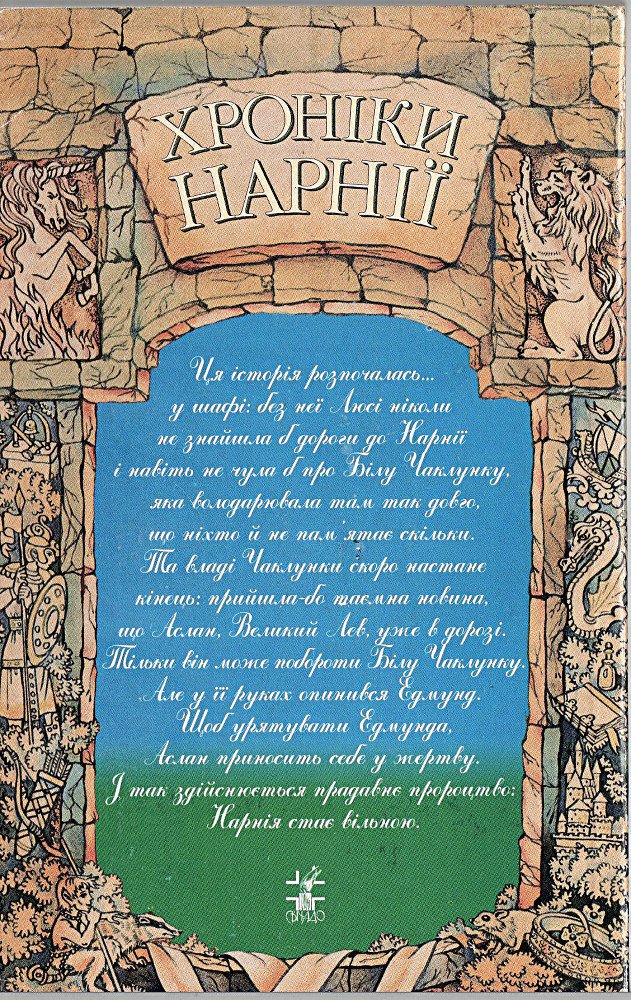 ХРОНІКИ
НАРНІЇ
Ця історія розпочалась...
у шафі: без неї Люсі ніколи
не знайшла б дороги до Нарнії
і навіть не чула б про Білу Чаклунку,
яка володарювала там так довго,
що ніхто й не пам'ятає скільки.
Та владі Чаклунки скоро настане
кінець: прийшла-бо таємна новина,
що Аслан, Великий Лев, уже в дорозі.
Тільки він може побороти Білу Чаклунку.
Але у її руках опинився Едмунд.
Щоб урятувати Едмунда,
Аслан приносить себе у жертву.
І так здійснюється прадавнє пророцтво:
Нарнія стає вільною.